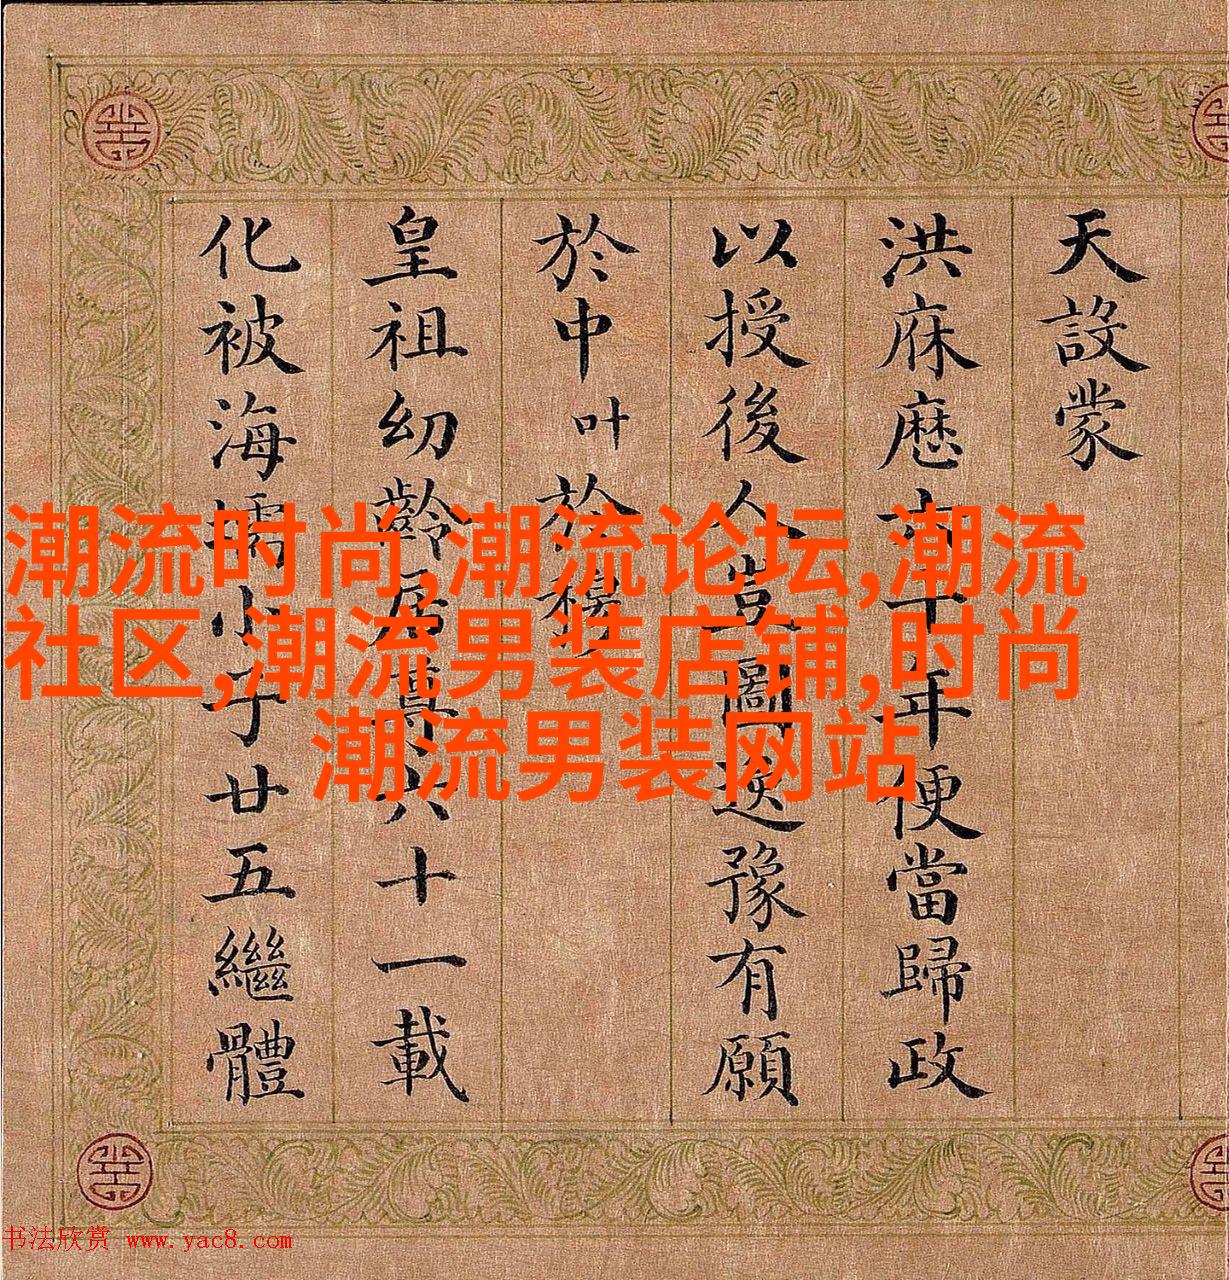 天設蒙
洪庥厯六十年便當歸政
以授後人豈圖逸豫有願
於中叶於
皇祖幼齡居尊六十一載
化被海小子廿五繼體
潮流时尚,潮流论坛,潮流
社区,潮流男装店铺,时尚
潮流男装网站
书法欣赏 www.yac8.com